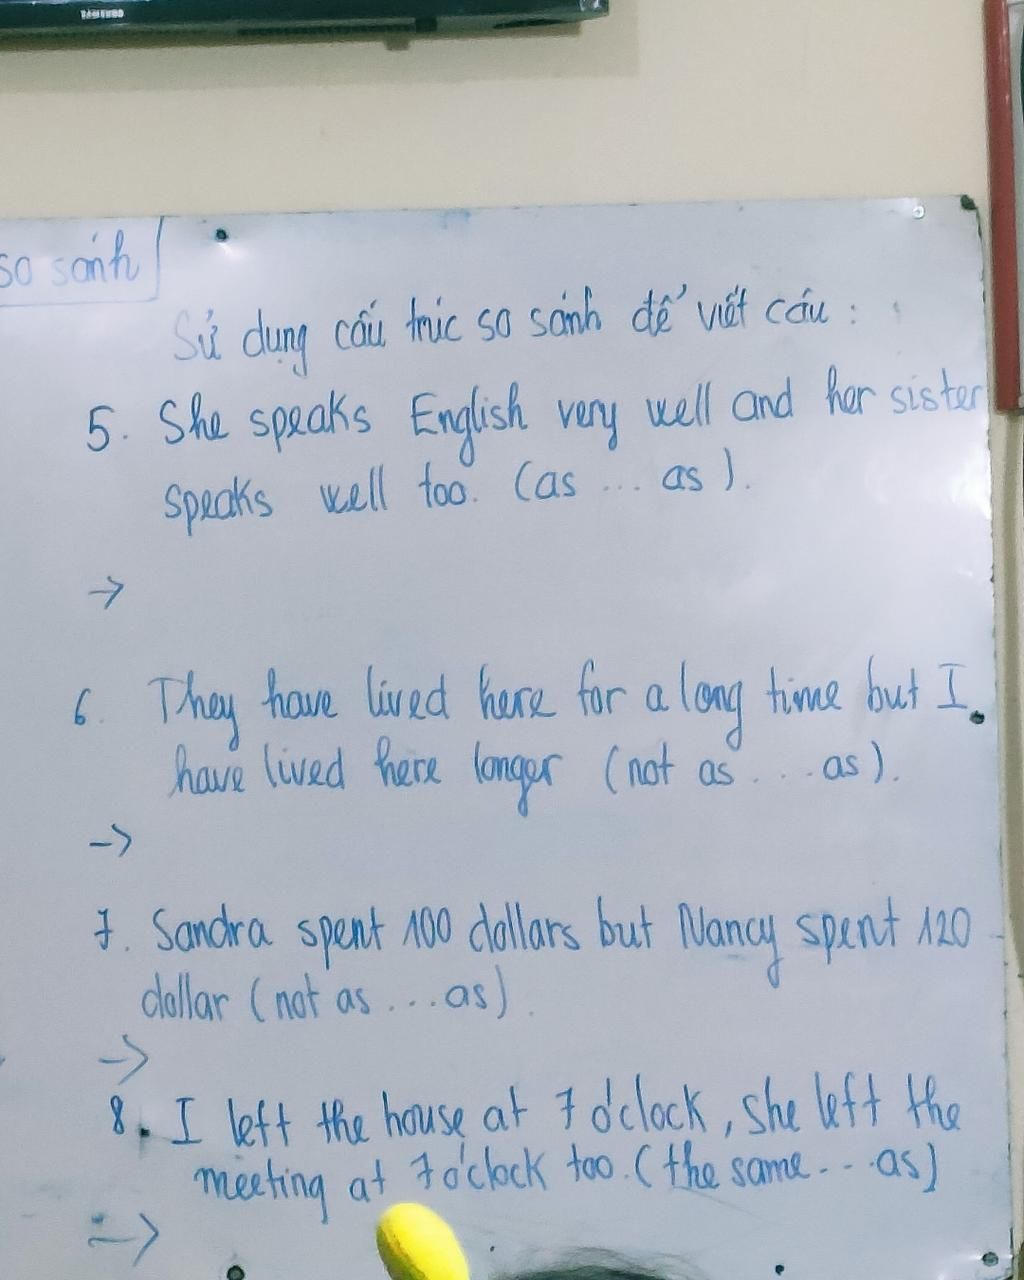 SAMSUNG
so sánh
Sử dụng cấu trúc so sánh để viết câu :
5. She speaks English very well and her sister
speaks well too. (as ... as ).
→
6. They have lived here for a long time but I
have lived here longer (not as ... as).
→
7. Sandra spent 100 dollars but Nancy spent 120
dollar (not as ... as).
→
8. I left the house at 7 o'clock, she left the
meeting at 7 o'clock too. (the same ... as)
→